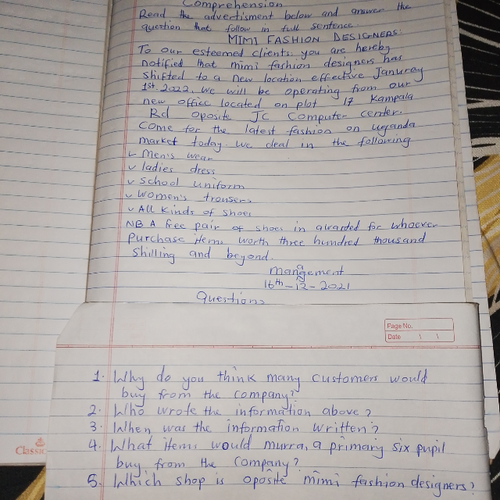 Comprehension
Read the advertisment below and answer the
question that follow in full sentence.
MIMI FASHION DESIGNERS:
To our esteemed clients, you are hereby
notified that mimi fashion designers has
shifted to a new location effective Janurey
1st 2022. We will be operating from our
new office located on plot 17 Kampala
Rd oposite JC Computer center.
Come for the latest fashion on uganda
market today. we deal in the following
✓ Men's wear
✓ ladies dress
✓ school uniform
✓ women's trousers
✓ All kinds of shoes
NB A free pair of shoes in awarded for whoever
purchase items worth three hundred thousand
shilling and beyond.
management
16th-12-2021
Questions
Page No.
Date
1. Why do you think many customers would
buy from the company?
2. Who wrote the information above?
3. When was the information written?
4. What items would murra, a primary six pupil
buy from the company?
5. Which shop is oposite mimi fashion designers?
Class